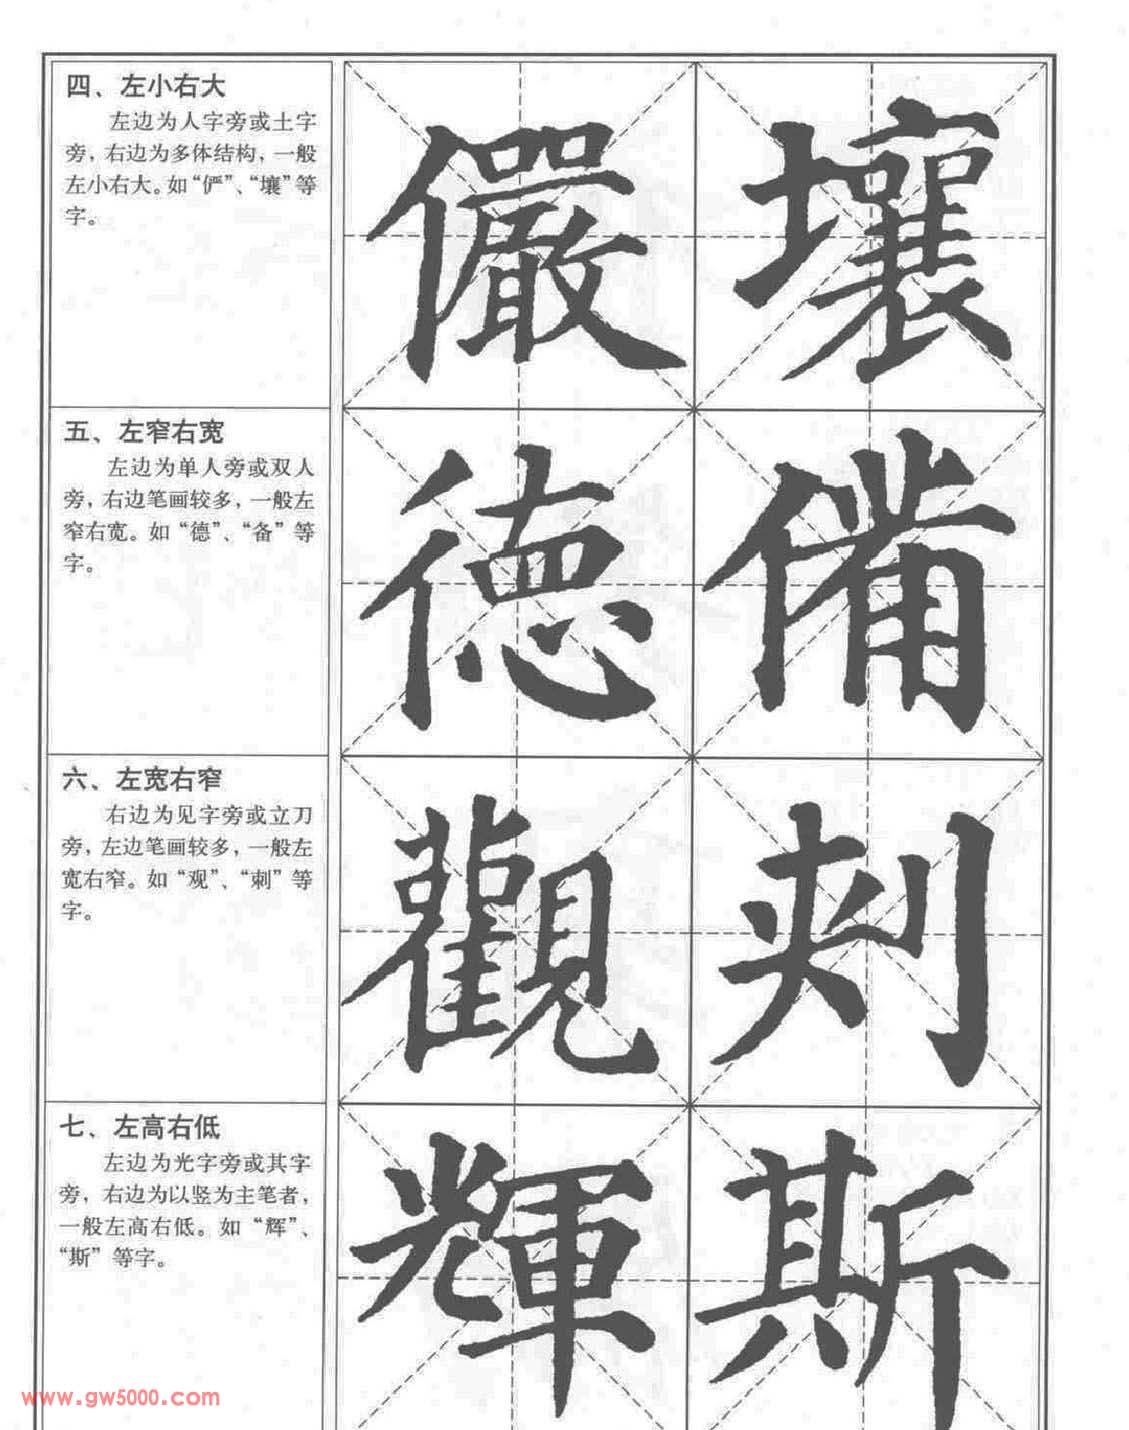 四、左小右大
左边为人字旁或土字
旁，右边为多体结构，一般
左小右大。如“俨”、“壤”等
字。
儼 壤
五、左窄右宽
左边为单人旁或双人
旁，右边笔画较多，一般左
窄右宽。如“德”、“备”等
字。
德 備
六、左宽右窄
右边为见字旁或立刀
旁，左边笔画较多，一般左
宽右窄。如“观”、“刺”等
字。
觀 刺
七、左高右低
左边为光字旁或其字
旁，右边为以竖为主笔者，
一般左高右低。如“辉”、
“斯”等字。
輝 斯
www.gw5000.com